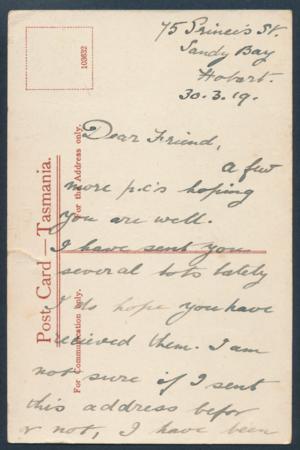 75 Princes St.
Sandy Bay
Hobart.
30.3.19.
103632
Dear Friend,
a few
more p.c's hoping
you are well.
I have sent you
several lots lately
I do hope you have
recieved them. I am
not sure if I sent
this address befor
r not, I have been
Post Card — Tasmania.
For the Address only.
For Communication only.